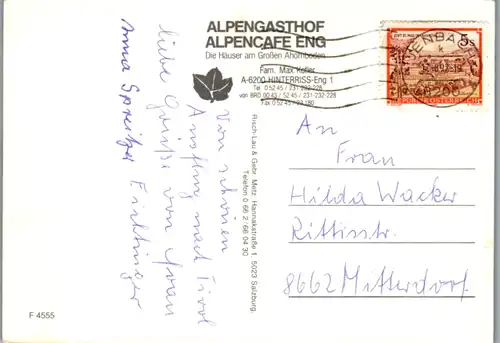 ALPENGASTHOF
ALPENCAFE ENG
Die Häuser am Großen Ahornboden
Fam. Max Kofler
A-6200 HINTERRISS-Eng 1
Tel. 0 52 45 / 231-232-228
von BRD 00 43 / 52 45 / 231-232-228
Fax 0 52 45
5 S
REPUBLIK ÖSTERREICH
Von schönen
Ausflug nach Tirol
liebe Grüße von
Anna
An
Frau
Hilda Wacker
8662 Mitterdorf
Risch-Lau & Gebr. Metz, Hannakstraße 1, 5023 Salzburg,
Telefon 0 66 2 / 66 04 30
F 4555